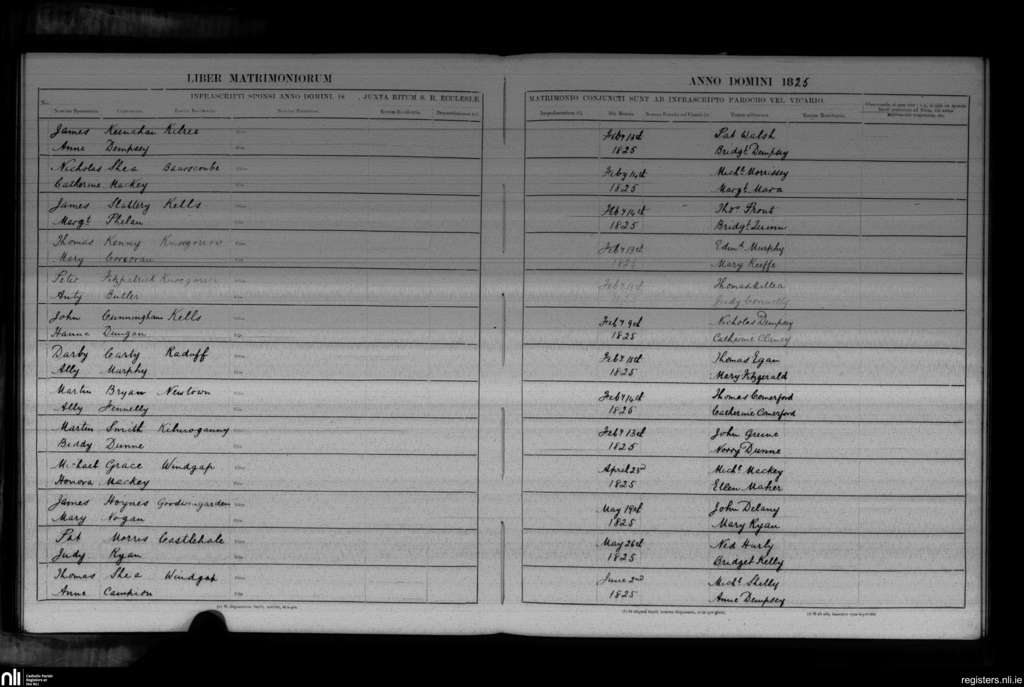 LIBER MATRIMONIORUM
ANNO DOMINI 1825
INFRASCRIPTI SPONSI ANNO DOMINI, 18 , JUXTA RITUM S. R. ECCLESIÆ
MATRIMONIO CONJUNCTI SUNT AB INFRASCRIPTO PAROCHO VEL VICARIO.
No.
James Keenahan Kilree Feby 13th Pat Walsh
Anne Dempsey 1825 Bridgt. Dempsey
Nicholas Shea Feby 14th Michl. Morrissey
Catherine Mackey 1825 Margt. Mara
James Slattery Kells Feby 14th Thos. Prout
Margt. Phelan 1825 Bridgt.
Thomas Kenny Feby 13th Edmd. Murphy
Mary Corcoran 1825 Mary Keeffe
Peter Fitzpatrick Feby Thomas
Anty Butler Judy Connelly
John Cunningham Kells Feby 9th Nicholas Dempsey
Hanna Dungan 1825 Catherine Clancy
Darby Carly Raduff Feby Thomas Egan
Ally Murphy 1825 Mary Fitzgerald
Martin Bryan Newtown Feby 14th Thomas Comerford
Ally Fennelly 1825 Catherine Comerford
Martin Smith Kilmoganny Feby 13th John Greene
Biddy Dunne 1825 Norry Dunne
Michael Grace Windgap April 23rd Michl. Mackey
Honora Mackey 1825 Ellen Maher
James Hoynes May 19th John Delany
Mary Hogan 1825 Mary Ryan
Pat Morris Castlehale May 26th Ned Hurly
Judy Ryan 1825 Bridget Kelly
Thomas Shea Windgap June 2nd Michl. Shelly
Anne Campion 1825 Anne Dempsey
nli Catholic Parish
Registers at
the NLI
registers.nli.ie